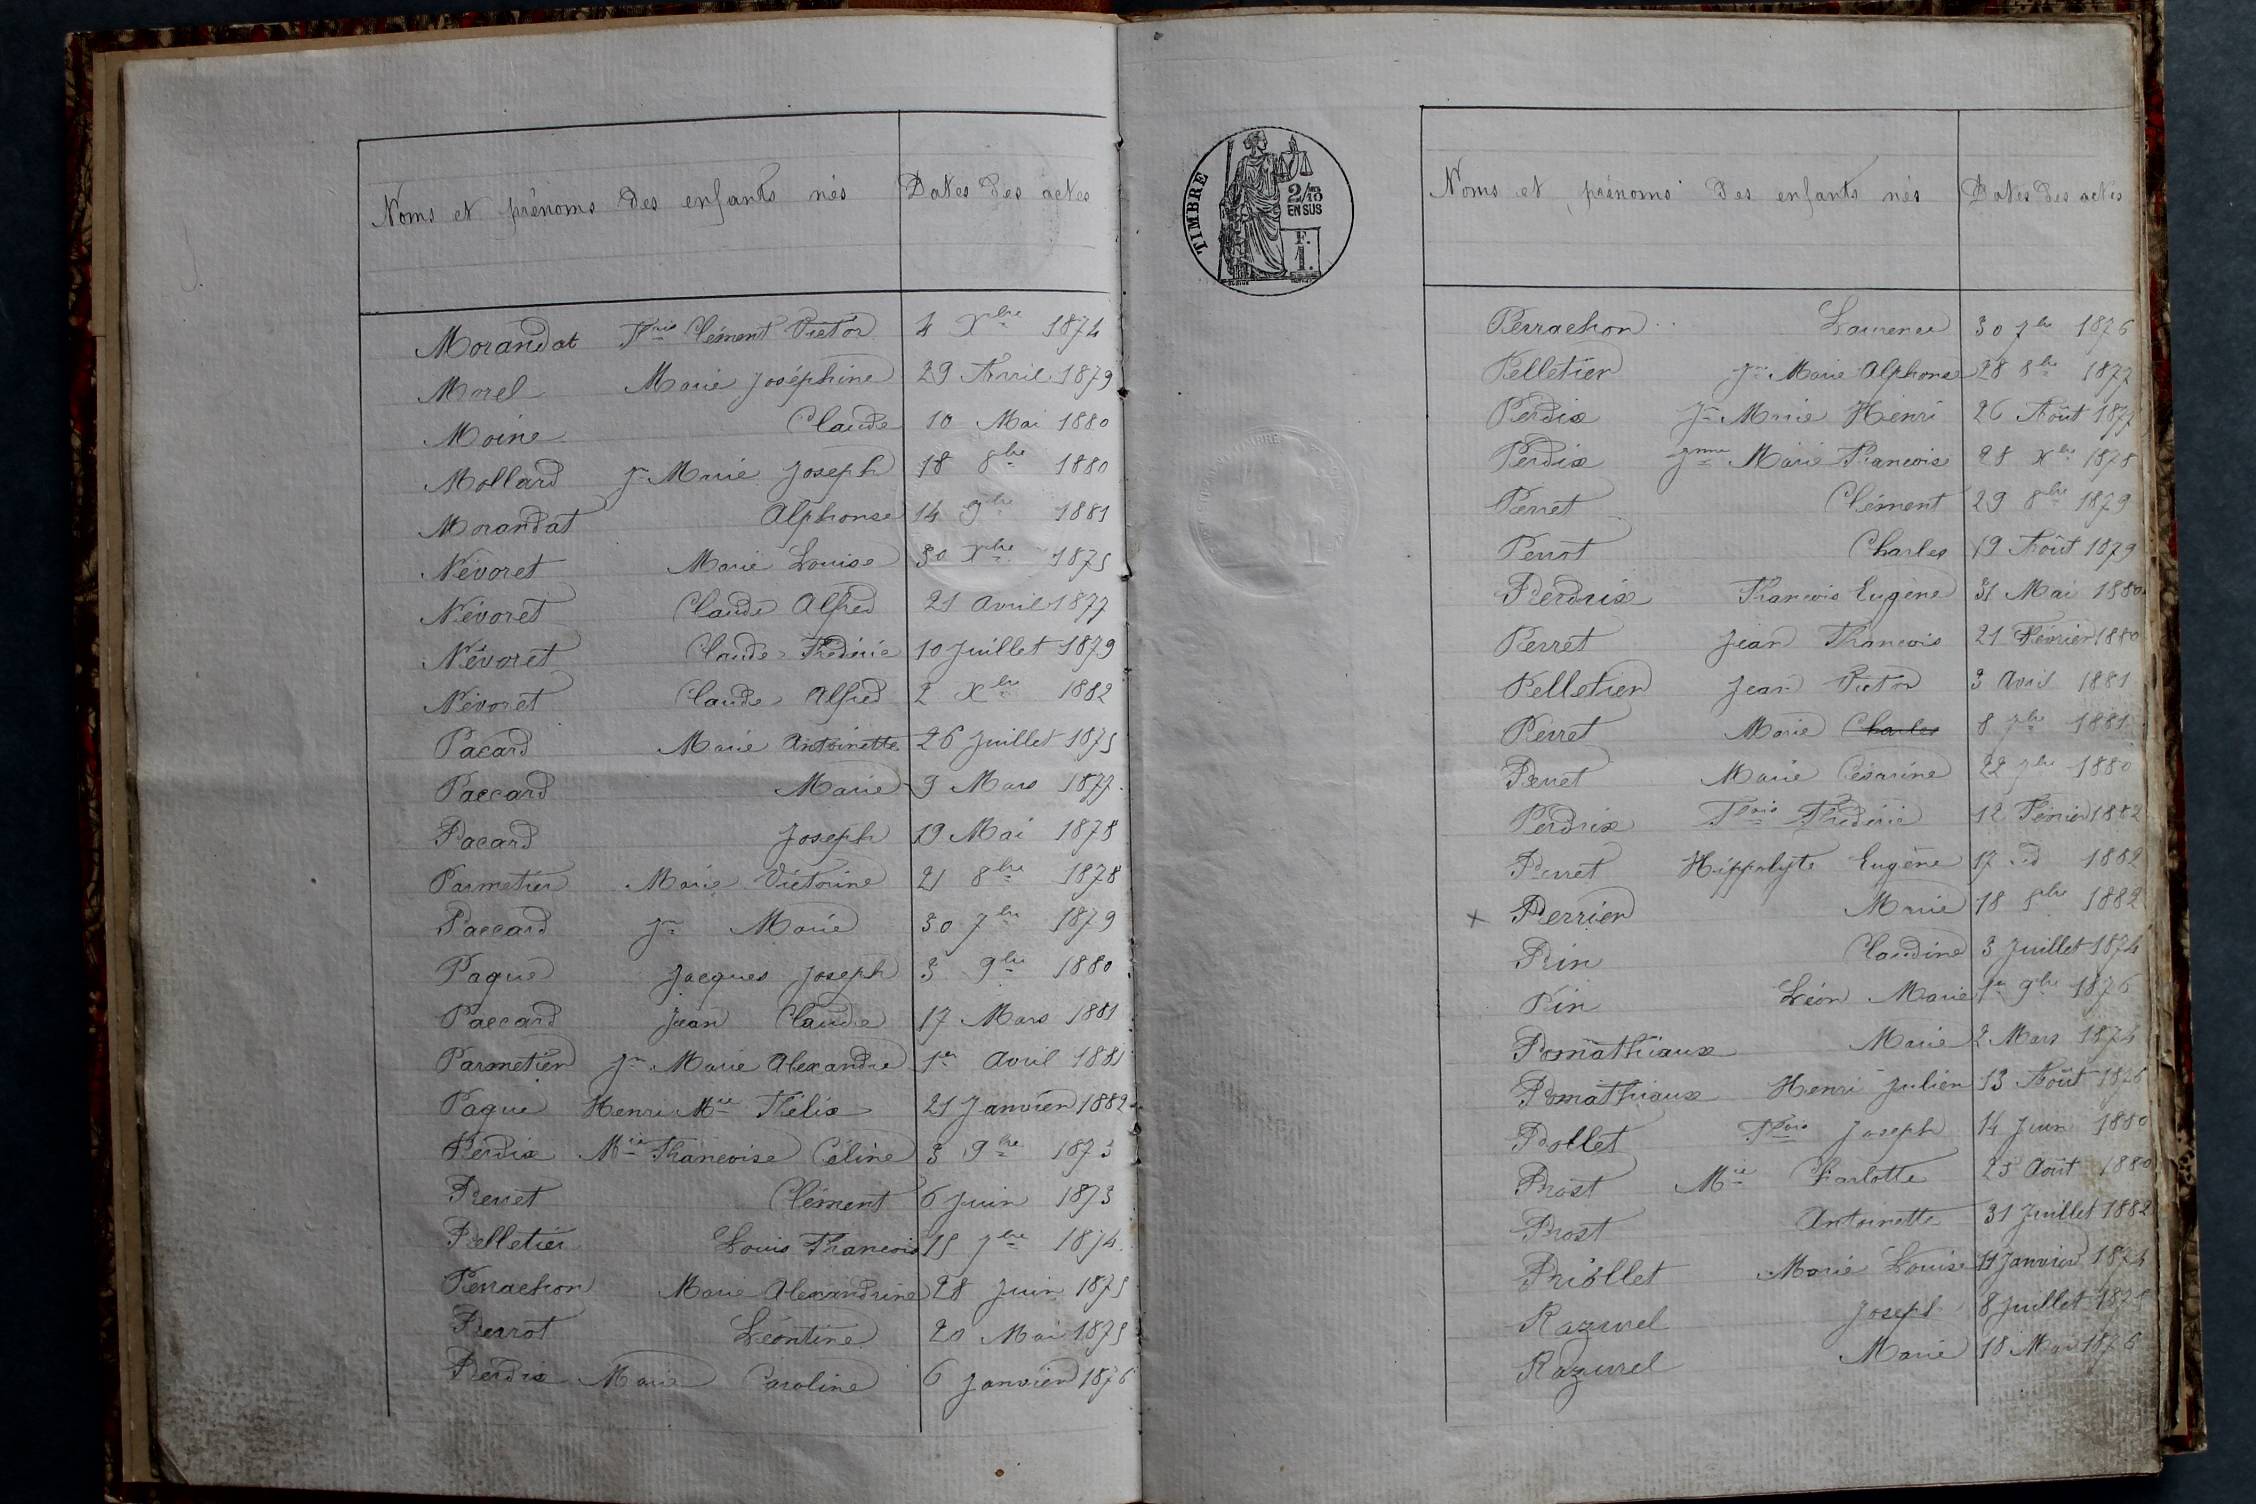 Noms et prénoms des enfants nés Dates des actes
Morandat Fçois Clément Victor 4 Xbre 1874
Morel Marie Joséphine 29 Avril 1879
Moine Claude 10 Mai 1880
Mollard Jn Marie Joseph 18 8bre 1880
Morandat Alphonse 14 9bre 1881
Névoret Marie Louise 30 Xbre 1875
Névoret Claude Alfred 21 avril 1877
Névoret Claude Frédéric 10 Juillet 1879
Névoret Claude Alfred 2 Xbre 1882
Pacard Marie Antoinette 26 Juillet 1875
Paccard Marie 9 Mars 1877
Pacard Joseph 19 Mai 1878
Parmetier Marie Victorine 21 8bre 1878
Paccard Jn Marie 30 7bre 1879
Pague Jacques Joseph 3 9bre 1880
Paccard Jean Claude 17 Mars 1881
Parmetier Jn Marie Alexandre 1er avril 1881
Pague Henri Mie Félix 21 Janvier 1882
Perdix Mie Francoise Céline 3 9bre 1873
Perret Clément 6 Juin 1873
Pelletier Louis Francois 15 7bre 1874
Perrachon Marie Alexandrine 28 Juin 1875
Perrot Léontine 20 Mai 1875
Perdix Marie Caroline 6 Janvier 1876
TIMBRE
2/10
EN SUS
F.
1.
Noms et prénoms des enfants nés Dates des actes
Perrachon Laurence 30 7bre 1876
Pelletier Jn Marie Alphonse 28 8bre 1877
Perdix Jn Marie Henri 26 Août 1877
Perdix Jnne Marie Francoise 28 Xbre 1878
Perret Clément 29 8bre 1879
Perrot Charles 19 Août 1879
Perdrix Francois Eugène 31 Mai 1880
Perret Jean Francois 21 Février 1880
Pelletier Jean Victor 3 Avril 1881
Perret Marie Charles 8 7bre 1881
Perret Marie Césarine 22 7bre 1880
Perdrix Fçois Frédéric 12 Février 1882
Perret Hippolyte Eugène 17 id 1882
x Perrier Marie 18 8bre 1882
Pin Claudine 3 Juillet 1874
Pin Léon Marie 1er 9bre 1876
Pomathiaux Marie 2 Mars 1874
Pomathiaux Henri Julien 13 Août 1876
Pollet Fçois Joseph 14 Juin 1880
Prost Mie Charlotte 25 Août 1880
Prost Antoinette 31 Juillet 1882
Priollet Marie Louise 11 Janvier 1874
Razurel Joseph 8 Juillet 1875
Razurel Marie 18 Mai 1876